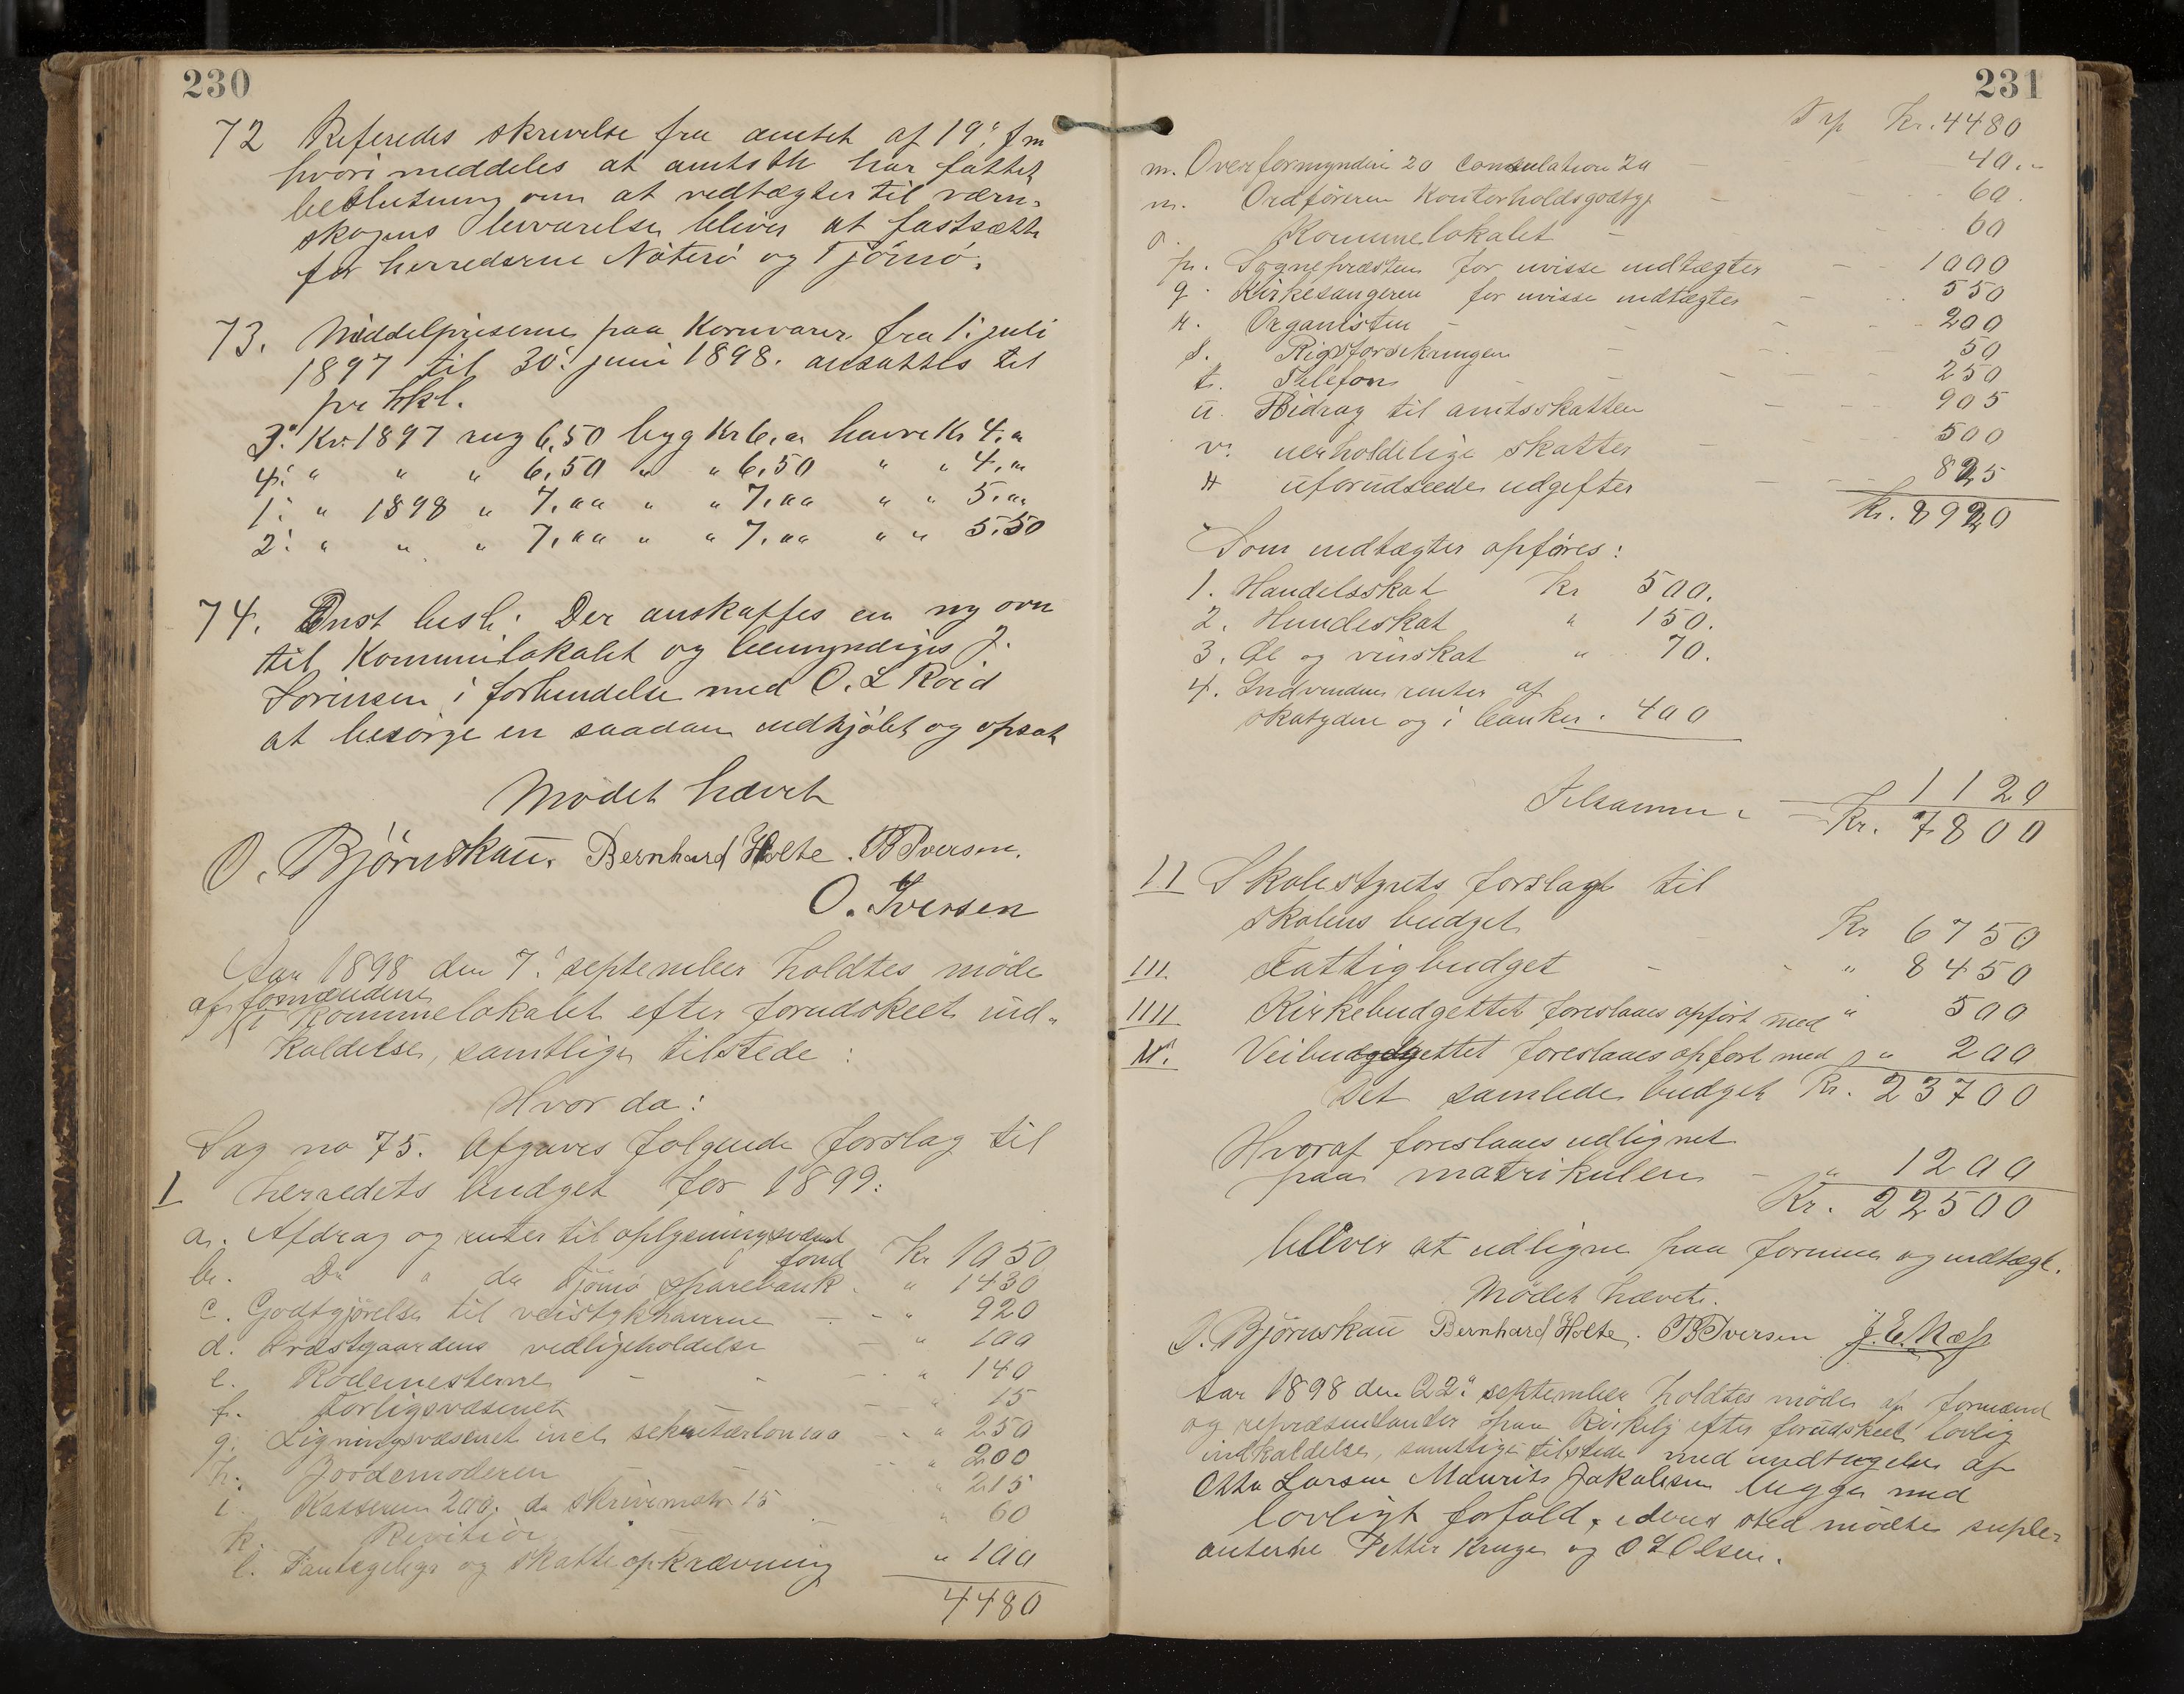 230
72 Referedes skrivelse fra amtet af 19. f m
hvori meddeles at amtsth har fattet
beslutning om at vedtægter til værn-
skogens bevarelse bliver at fastsætte
for herrederne Nøterø og Tjømø.
73. Middelpriserne paa Kornvarer fra 1. juli
1897 til 30. juni 1898. ansattes til
pr hkl.
3. Kv. 1897 rug 6,50 byg Kr 6,00 havre Kr 4,00
4. " " " 6,50 " " 6,50 " " 4,00
1. " 1898 " 7,00 " " 7,00 " " 5,00
2. " " " 7,00 " " 7,00 " " 5,50
74. Enst besl: Der anskaffes en ny ovn
til Kommunelokalet og bemyndiges J.
Sørensen i forbindelse med O. L Røed
at besørge en saadan indkjøbt og opsat
Mødet hævet
O. Bjørnskau. Bernhard Holte. B Iversen.
O. Iversen
Aar 1898 den 7. september holdtes møde
af formændene
i Kommunelokalet efter forudskeet ind-
kaldelse, samtlige tilstede:
Hvor da:
Sag no 75. Afgaves følgende forslag til
I herredets budget for 1899:
a. Afdrag og renter til oplysningsvæsnd
fond Kr 1050
b. Do " do Tjømø sparebank. " 1430
c. Godtgjørelse til veistykhaverne - - " 920
d. Præstgaardens vedligeholdelse - " 100
e. Rodemesterne - - - " 140
f. Forligsvæsenet - " 15
g. Ligningsvæsenet incl. sekretærlon 100 - " 250
h. Jordemoderen - - - " 200
i. Kassereren 200. do skrivemat 15 " 215
k. Revisior " 60
l. Pantegelige og skatteopkrævning " 100
4480
231
Trp Kr. 4480
m. Overformynderi 20 Consulation 20 - 40.-
n. Ordføreren Kontorholdsgodtgj - 60.
o. Kommunelokalet - 60
p. Sognepræsten for uvisse indtægter - 1000
q. Kirkesangeren for uvisse indtægter - 550
r. Organisten - 200
s. Rigsforsikringen - 50
t. Telefon - 250
u. Bidrag til amtsskatten - 905
v. uerholdelige skatter - 500
x uforudseede udgifter - 825
Kr. 8920
Som indtægter opføres:
1. Handelsskat Kr 500.
2. Hundeskat " 150.
3. Øl og vinskat " 70.
4. Indvendne renter af
skatydere og i banker. 400
Tilsammen - 1120
Kr. 7800
II Skolestyrets forslag til
skolens budget - Kr 6750
III. Fattigbudget - - " 8450
IIII Kirkebudgettet foreslaaes opført med " 500
V. Veibudgettet foreslaaes opført med " 200
Det samlede budget Kr. 23700
Hvoraf foreslaaes udlignet
paa matrikulen - " 1200
Kr. 22500
bliver at udligne paa formue og indtægt.
Mødet hævet.
O. Bjørnskau Bernhard Holte. B Iversen J. E. Næss
Aar 1898 den 22. september holdtes møde af formænd
og repræsentanter paa Kirkeby efter forudskeet lovlig
indkaldelse, samtlige tilstede med undtagelse af
Otto Larsen Maurits Jakobsen begge med
lovligt forfald, i deres sted mødte suple-
anterne Petter Kruge og O L Olsen.